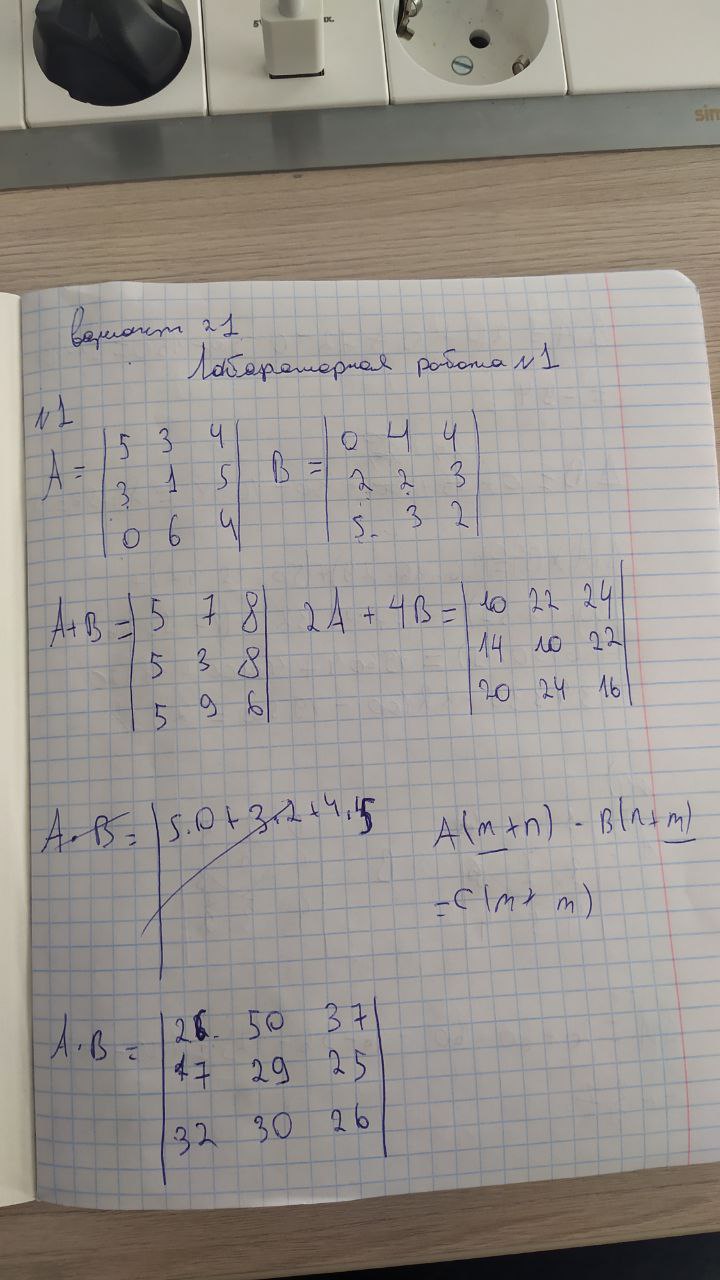 вариант 21
Лабораторная работа №1
№1
A = | 5 3 4 | B = | 0 4 4 |
| 3 1 5 | | 2 2 3 |
| 0 6 4 | | 5 3 2 |
A+B = | 5 7 8 | 2A + 4B = | 10 22 24 |
| 5 3 8 | | 14 10 22 |
| 5 9 6 | | 20 24 16 |
A·B = | 5·0+3·2+4·5 A(m+n) - B(n+m)
= C(m+m)
A·B = | 26 50 37 |
| 17 29 25 |
| 32 30 26 |